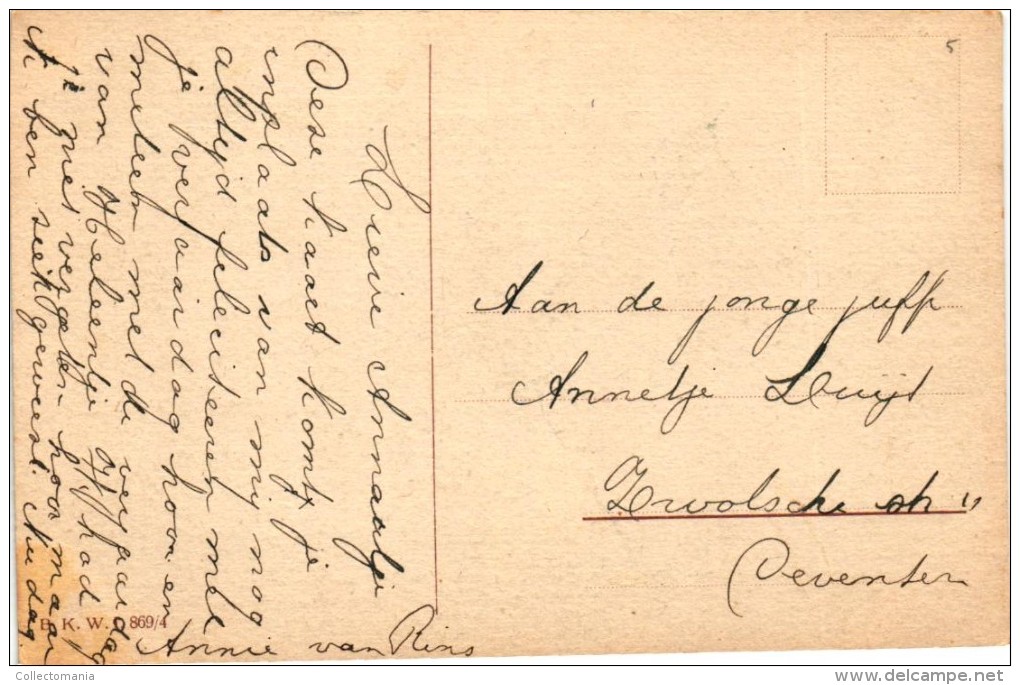 Lieve Annaatje
Deze kaart komt je
inplaats van mij nog
altijd feleciteeren met
je verjaardag hoor en
meteen met de verjaardag
van Heleentje Ik had
je niet vergeten hoor maar
ik ben ziek geweest. Nu dag
Annie van Rins
Aan de jonge juff
Annetje Luijt
Zwolsche str
Deventer
5
B. K. W. 869/4
Collectomania
delcampe.net